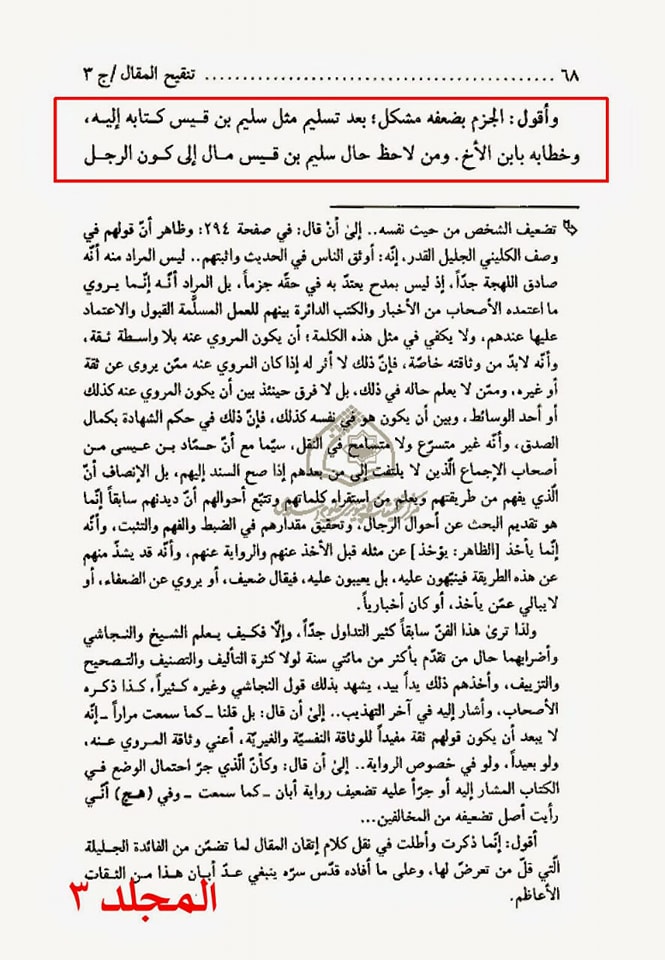 ٦٨ ................................................ تنقيح المقال / ج ٣
وأقول: الجزم بضعفه مشكل؛ بعد تسليم مثل سليم بن قـيس كـتابه إليـه،
وخطابه بابن الأخ. ومن لاحظ حال سليم بن قـيس مـال إلى كـون الرجـل
تضعيف الشخص من حيث نفسه.. إلىٰ أنْ قال: في صفحة ٢٩٤: وظاهر أنّ قولهم في
وصف الكليني الجليل القدر، إنّه: أوثق الناس في الحديث واثبتهم.. ليس المراد منه أنّه
صادق اللهجة جدّاً، إذ ليس بمدح يعتدّ به في حقّه جزماً، بل المراد أنّـه إنّـما يـروي
ما اعتمده الأصحاب من الأخبار والكتب الدائرة بينهم للعمل المسلّمة القبول والاعتماد
عليها عندهم، ولا يكفي في مثل هذه الكلمة؛ أن يكون المروي عنه بلا واسطة ثـقة،
وأنّه لابدّ من وثاقته خاصّة، فإنّ ذلك لا أثر له إذا كان المروي عنه ممّن يروى عن ثقة
أو غيره، وممّن لا يعلم حاله في ذلك، بل لا فرق حينئذ بين أن يكون المروي عنه كذلك
أو أحد الوسائط، وبين أن يكون هو في نفسه كذلك، فإنّ ذلك في حكم الشهادة بكمال
الصدق، وأنّه غير متسرّع ولا متسامح في النقل، سيّما مع أنّ حمّاد بـن عـيسى مـن
أصحاب الإجماع الّذين لا يلتفت إلى من بعدهم إذا صح السند إليهم، بل الإنصاف أنّ
الّذي يفهم من طريقتهم ويعلم من استقراء كلماتهم وتتبّع أحوالهم أنّ ديدنهم سابقاً إنّما
هو تقديم البحث عن أحوال الرجال، وتحقيق مقدارهم في الضبط والفهم والتثبت، وأنّه
إنّما يأخذ [الظاهر: يؤخذ] عن مثله قبل الأخذ عنهم والرواية عنهم، وأنّه قد يشذّ منهم
عن هذه الطريقة فينبّهون عليه، بل يعيبون عليه، فيقال ضعيف، أو يروي عن الضعفاء، أو
لايبالي عمّن يأخذ، أو كان أخبارياً.
ولذا ترىٰ هذا الفنّ سابقاً كثير التداول جدّاً، وإلّا فكـيف يـعلم الشـيخ والنـجاشي
وأضرابهما حال من تقدّم بأكثر من مائتي سنة لولا كثرة التأليف والتصنيف والتـصحيح
والتزييف، وأخذهم ذلك يداً بيد، يشهد بذلك قول النجاشي وغيره كثيراً، كـذا ذكـره
الأصحاب، وأشار إليه في آخر التهذيب.. إلىٰ أن قال: بل قلنا ـ كما سمعت مراراً ـ إنّه
لا يبعد أن يكون قولهم ثقة مفيداً للوثاقة النفسيّة والغيريّة، أعني وثاقة المـروي عـنه،
ولو بعيداً، ولو في خصوص الرواية.. إلىٰ أن قال: وكأنّ الّذي جرّ احتمال الوضع فـي
الكتاب المشار إليه أو جرّأ عليه تضعيف رواية أبان ـ كما سمعت ـ وفي (هـج) أنّـي
رأيت أصل تضعيفه من المخالفين...
أقول: إنّما ذكرت وأطلت في نقل كلام إتقان المقال لما تضمّن من الفائدة الجـليلة
الّتي قلّ من تعرّض لها، وعلى ما أفاده قدّس سره ينبغي عدّ أبـان هـذا مـن الثـقات
الأعاظم.
المجلد ٣